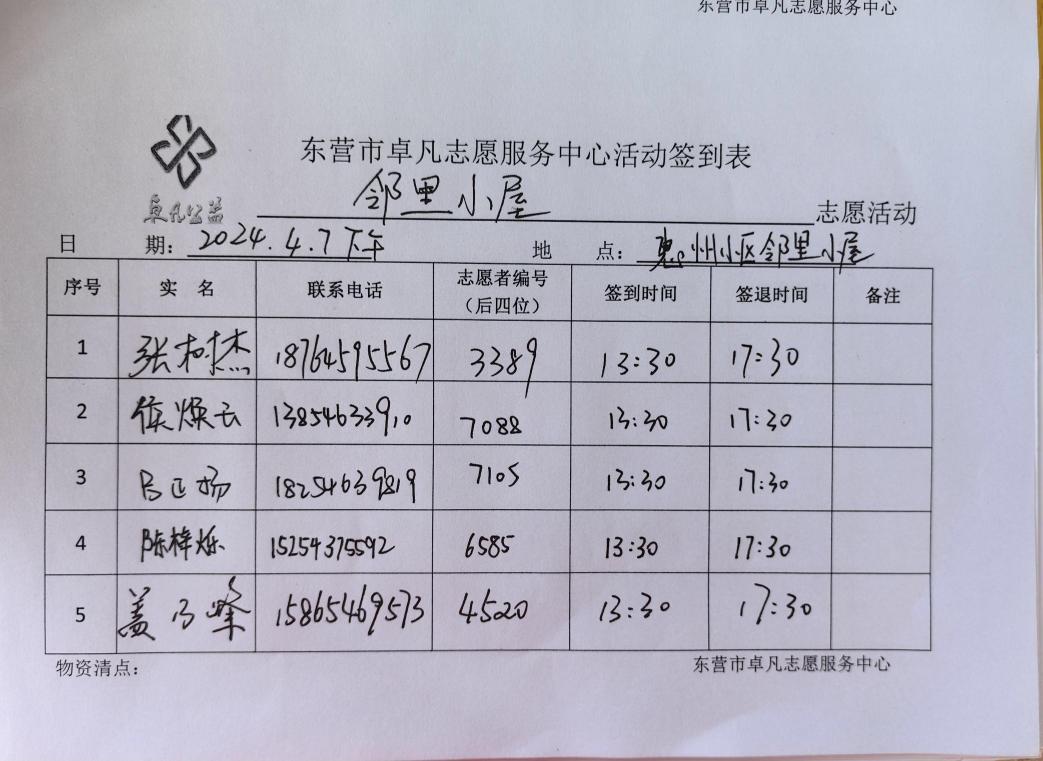 东营市卓凡志愿服务中心
东营市卓凡志愿服务中心活动签到表
卓凡公益
邻里小屋 志愿活动
日 期: 2024.4.7下午 地 点: 惠州小区邻里小屋
序号 实 名 联系电话 志愿者编号（后四位） 签到时间 签退时间 备注
1 张树杰 18764595567 3389 13:30 17:30
2 侯焕云 13854633910 7088 13:30 17:30
3 吕正杨 18254639819 7105 13:30 17:30
4 陈梓烁 15254375592 6585 13:30 17:30
5 盖乃峰 15865469573 4520 13:30 17:30
物资清点: 东营市卓凡志愿服务中心